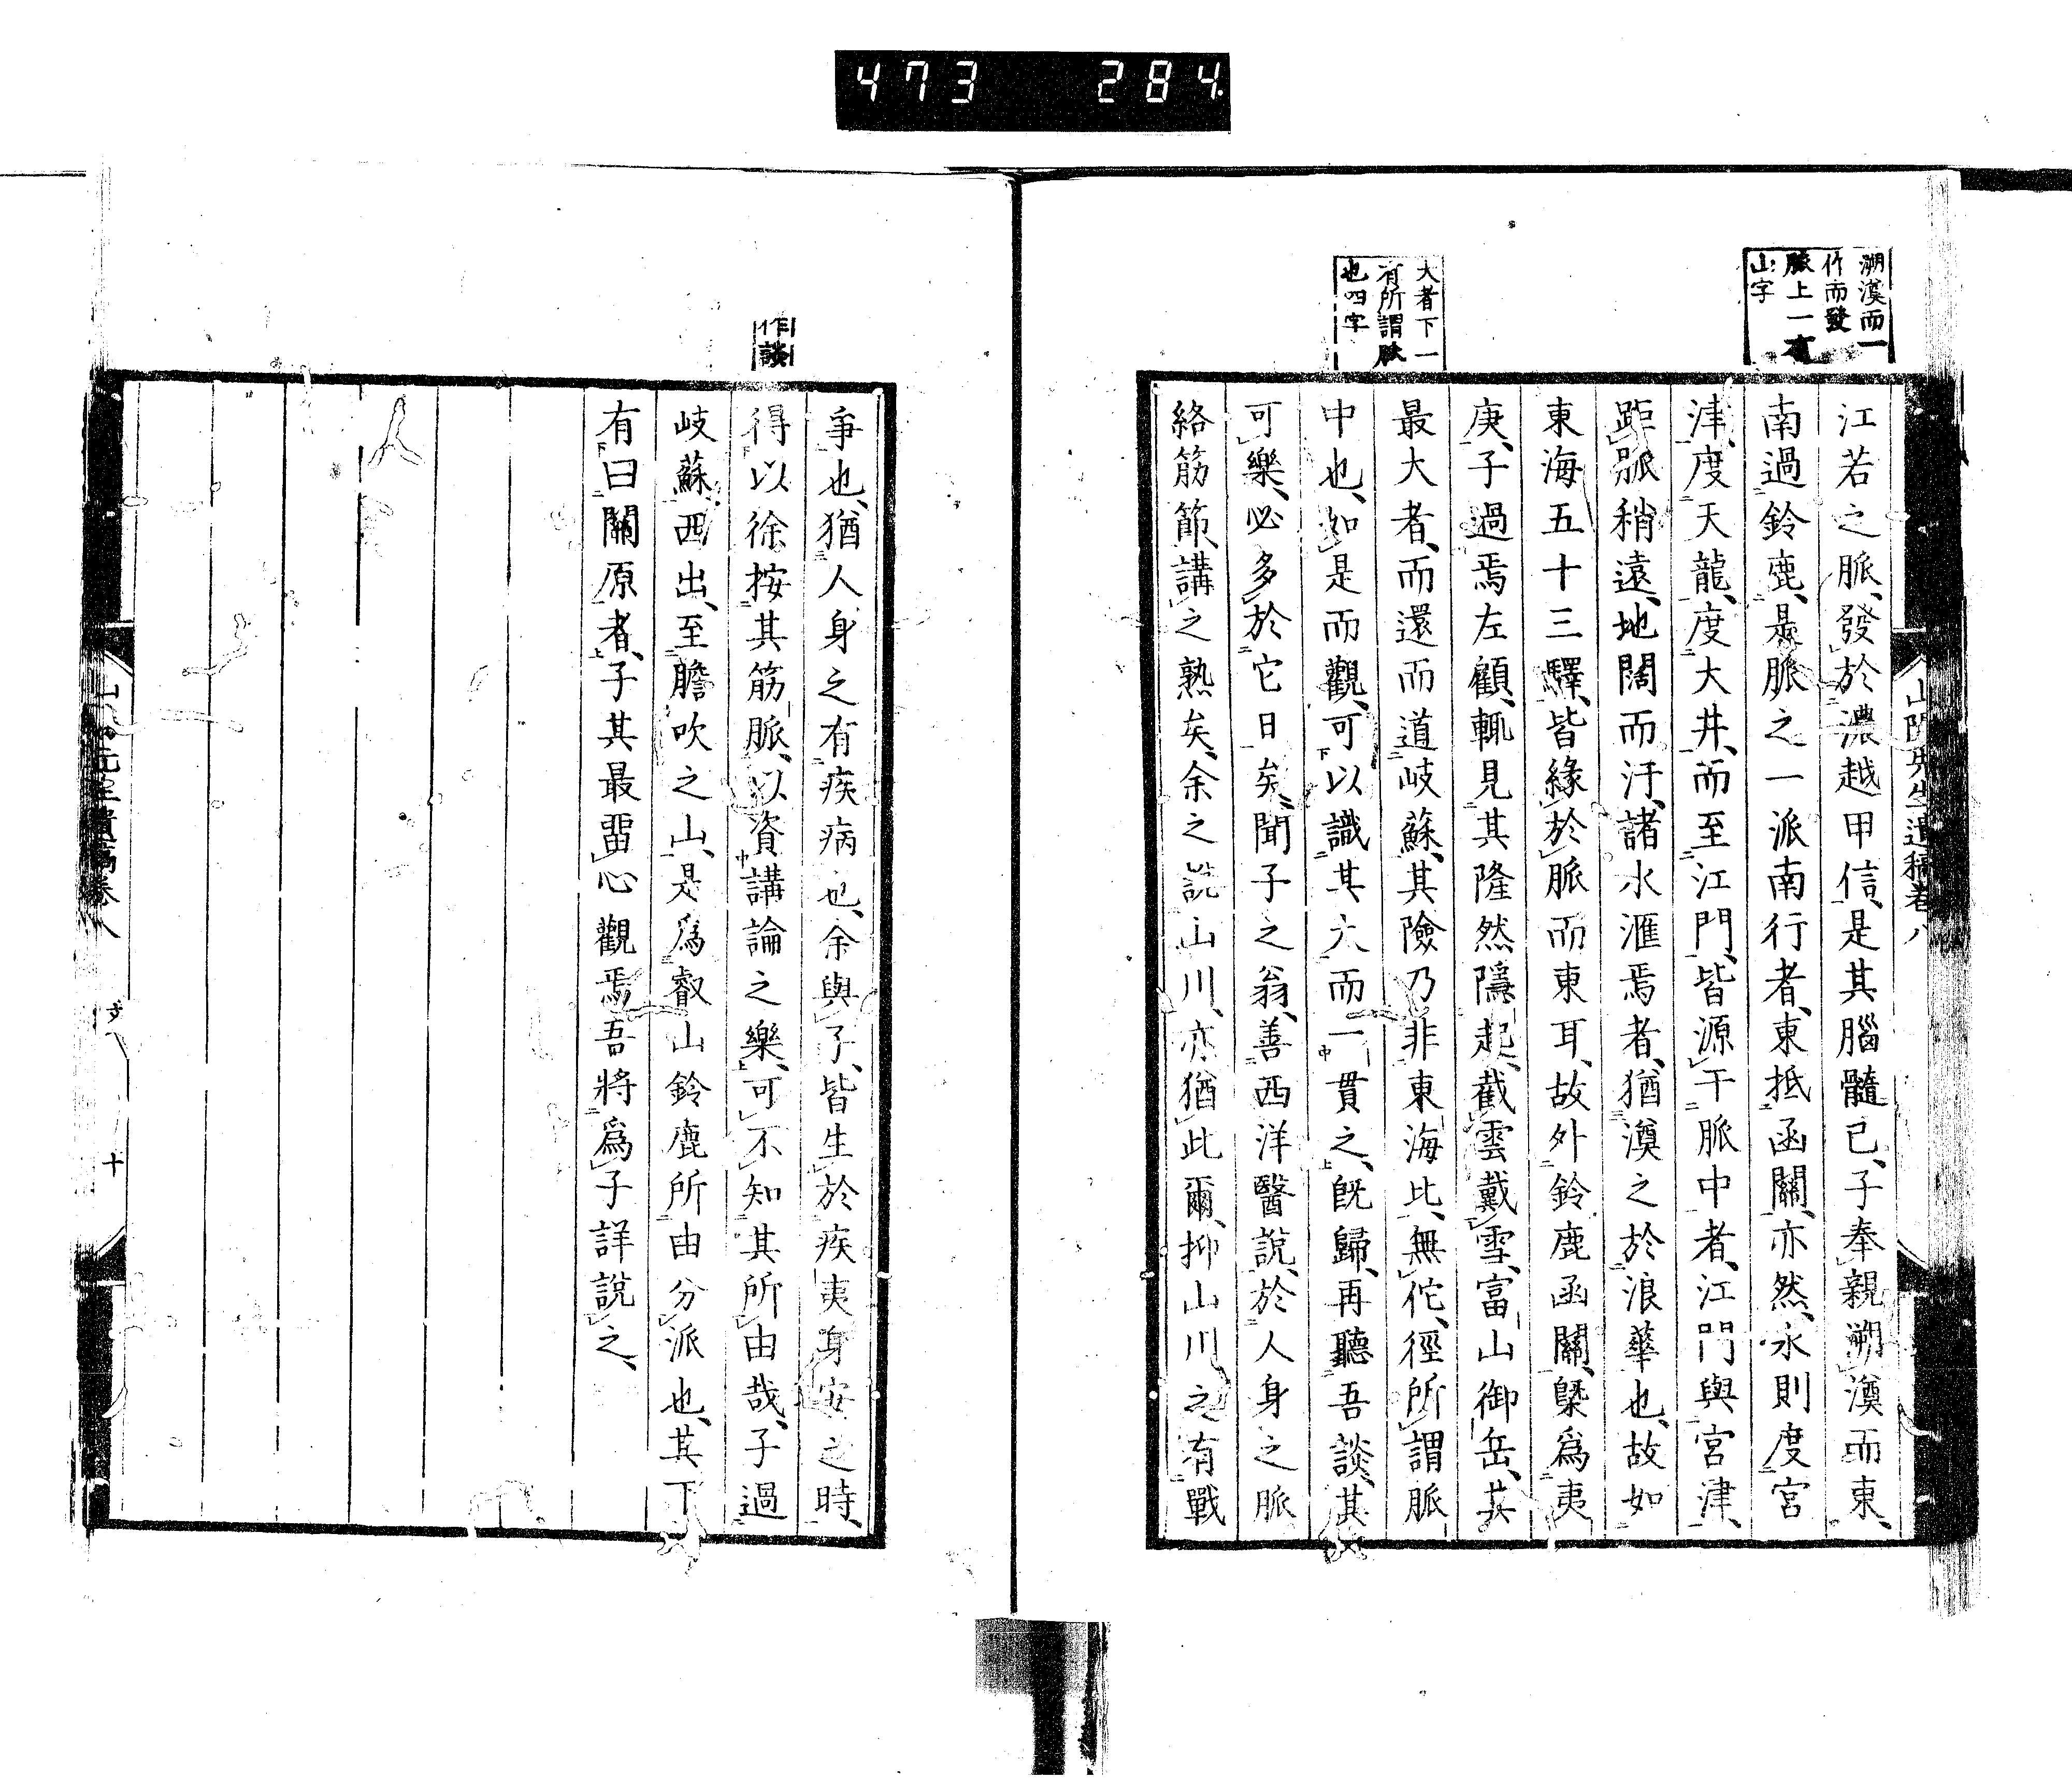 473 284.
溯澳而一
作而發
脈上一有
山字
大者下一
有所謂脈
也四字
山陽先生遺稿卷八
江若之脈、發於濃越甲信、是其腦髓已、子奉親溯澳而東、
南過鈴鹿、是脈之一派南行者、東抵函關、亦然、永則度宮
津、度天龍、度大井、而至江門、皆源干脈中者、江門與宮津、
距脈稍遠、地闊而汙、諸水滙焉者、猶澳之於浪華也、故如
東海五十三驛、皆緣於脈而東耳、故外鈴鹿函關、槩爲夷
庚、子過焉左顧、輒見其隆然隱起、截雲戴雪、富山御岳、其
最大者、而還而道岐蘇、其險乃非東海比、無佗、徑所謂脈
中也、如是而觀、可以識其大而一貫之、既歸、再聽吾談、其
可樂、必多於它日矣、聞子之翁、善西洋醫說、於人身之脈
絡筋節、講之熟矣、余之說山川、亦猶此爾、抑山川之有戰
作談
爭也、猶人身之有疾病也、余與子、皆生於疾夷身安之時、
得以徐按其筋脈、以資講論之樂、可不知其所由哉、子過
岐蘇、西出、至膽吹之山、是爲叡山鈴鹿所由分派也、其下
有曰關原者、子其最畱心觀焉、吾將爲子詳說之、
山陽先生遺稿卷八
十